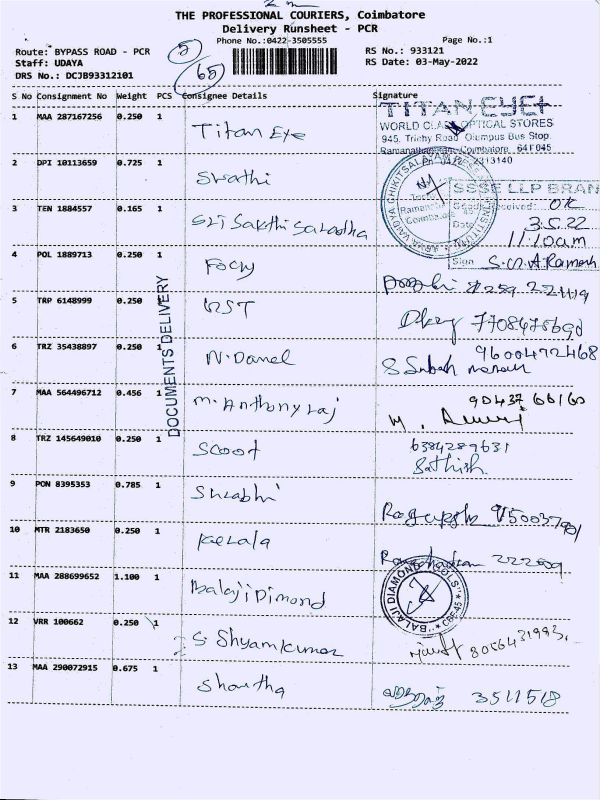 THE PROFESSIONAL COURIERS, Coimbatore
Delivery Runsheet - PCR
Phone No.:0422-3505555
Page No.:1
Route: BYPASS ROAD - PCR
RS No.: 933121
Staff: UDAYA
RS Date: 03-May-2022
DRS No.: DCJB93312101
5
65
S No Consignment No Weight PCS Consignee Details Signature
1 MAA 287167256 0.250 1 Titan Eye
TITAN EYE+
WORLD CLASS OPTICAL STORES
945, Trichy Road Olumpus Bus Stop
Coimbatore 641045
2313140
2 DPI 10113659 0.725 1 Swathi
SSSE LLP BRAN
Received: OK
Date 3.5.22
11.10am
Sign
3 TEN 1884557 0.165 1 Sri Sakthi Saradha
4 POL 1889713 0.250 1
5 TRP 6148999 0.250 1 GST
6 TRZ 35438897 0.250 1 N. Daniel
9600472468
7 MAA 564496712 0.456 1 M. Anthony raj
90437 66160
8 TRZ 145649010 0.250 1 Scoot
6384289631
Sathish
9 PON 8395353 0.785 1 Surabhi
10 MTR 2183650 0.250 1 Kerala
11 MAA 288699652 1.100 1 Balaji Dimond
"BALAJI DIAMOND TOOLS" CBE-45
12 VRR 100662 0.250 1 S Shyamkumar
8056431993
13 MAA 290072915 0.675 1 Shantha
3511518
DOCUMENTS DELIVERY